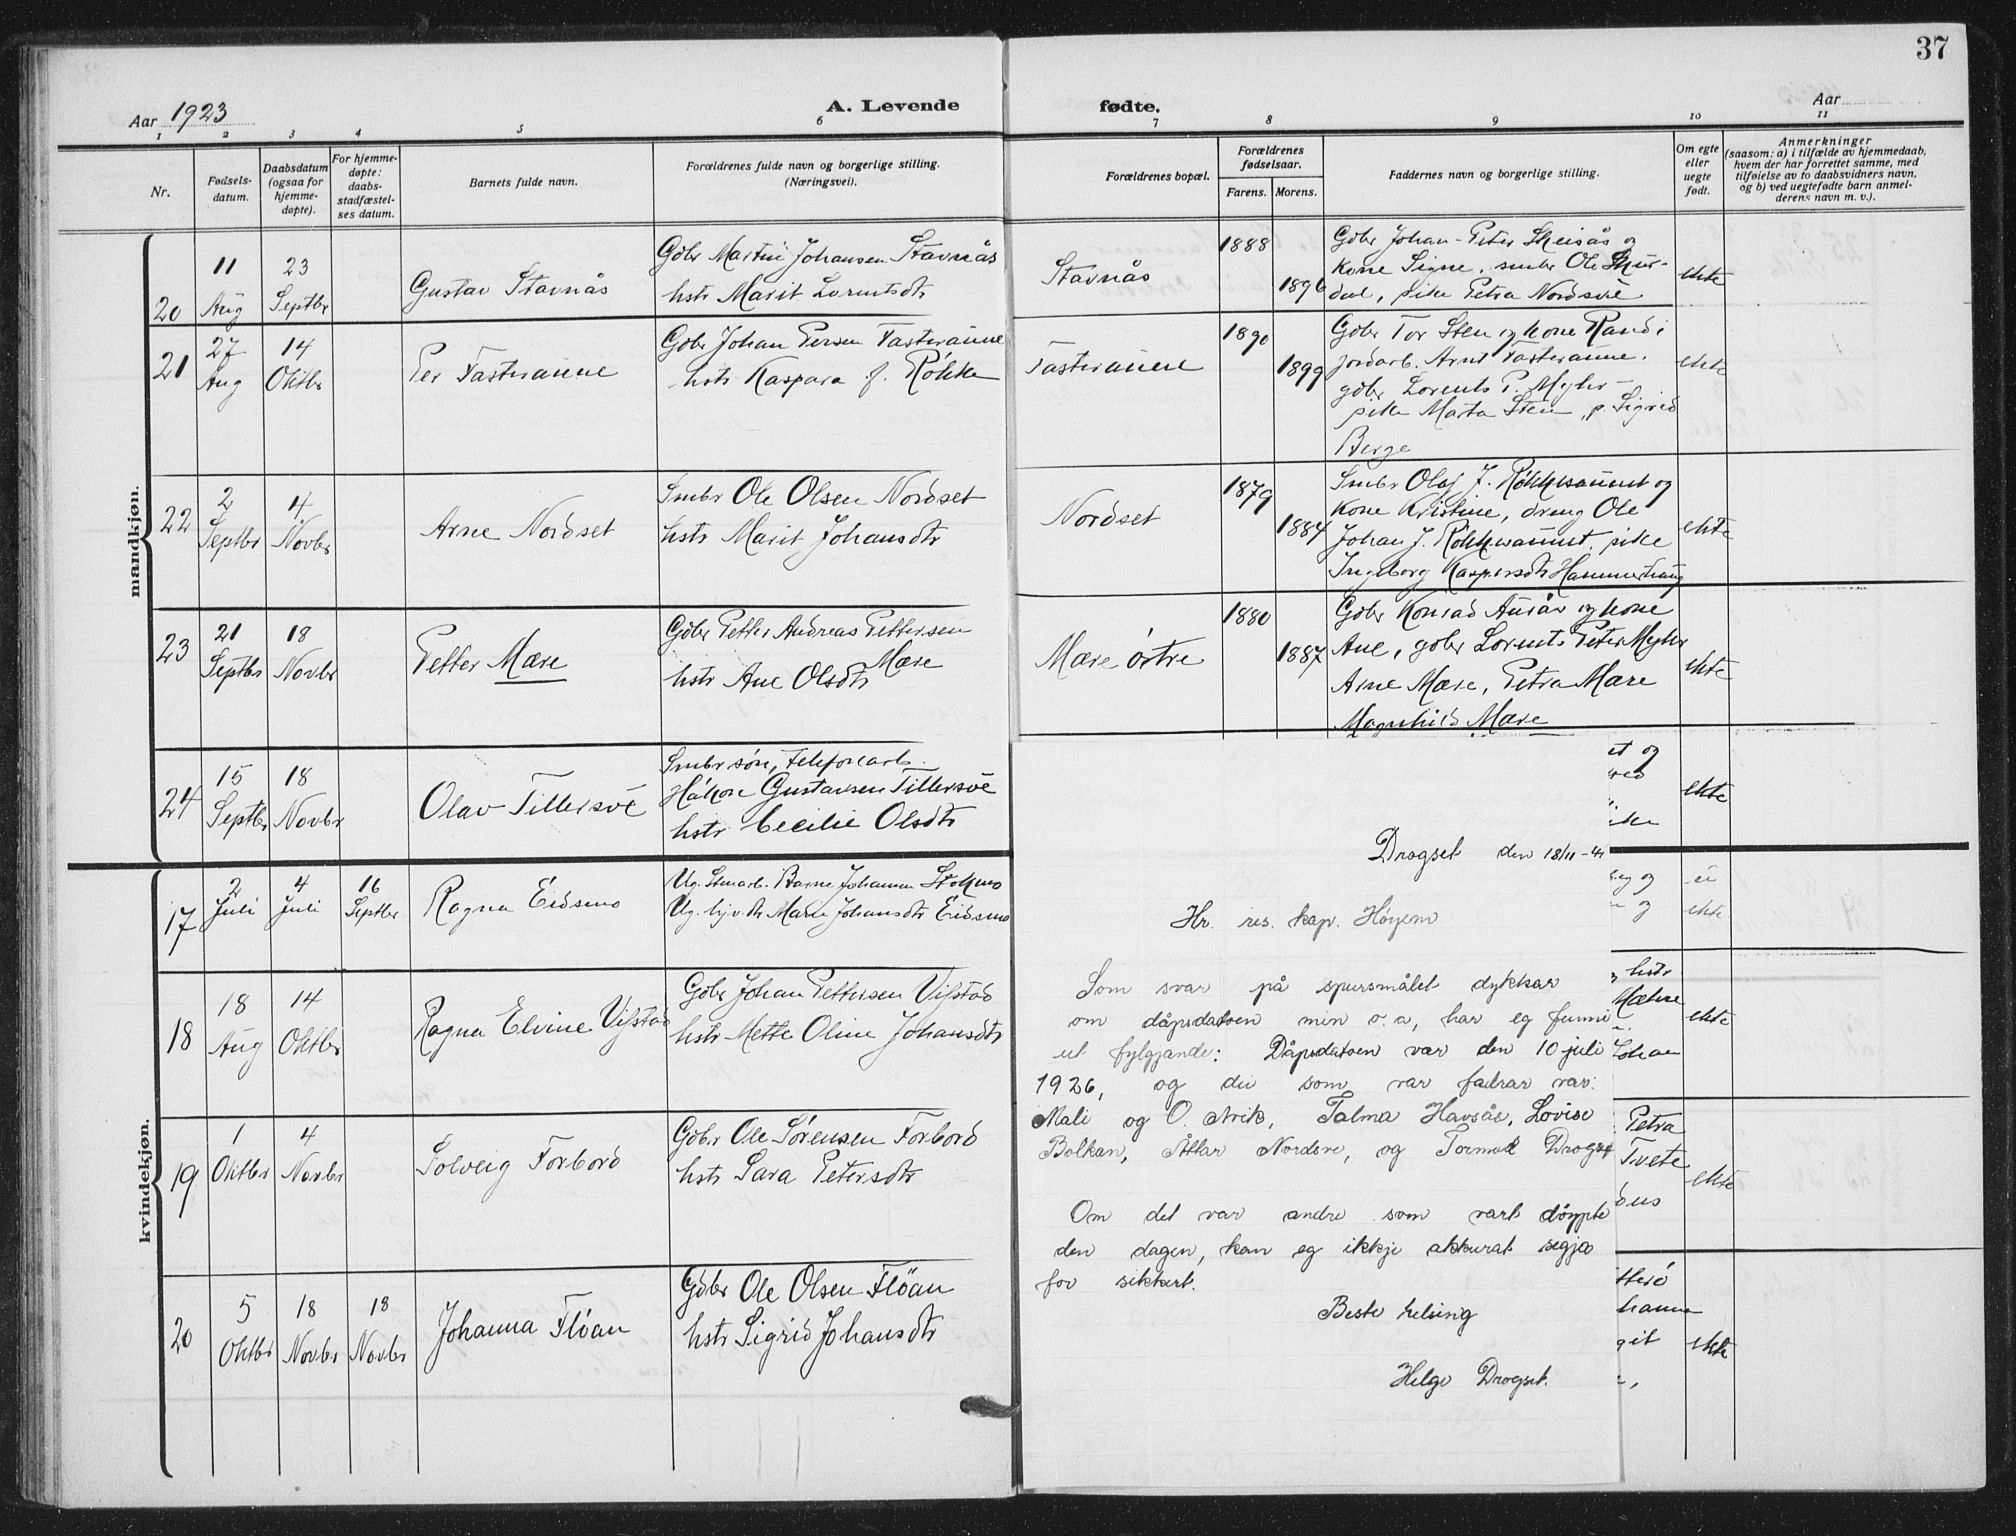 37
Aar 1923
A. Levende
fødte.
Aar
1 2 3 4 5 6 7 8 9 10 11
Nr.
Fødsels-
datum.
Daabsdatum
(ogsaa for
hjemme-
døpte).
For hjemme-
døpte:
daabs-
stadfæstel-
ses datum.
Barnets fulde navn.
Forældrenes fulde navn og borgerlige stilling.
(Næringsvei).
Forældrenes bopæl.
Forældrenes
fødselsaar.
Farens.
Morens.
Faddernes navn og borgerlige stilling.
Om egte
eller
uegte
født.
Anmerkninger
(saasom: a) i tilfælde av hjemmedaab,
hvem der har forrettet samme, med
tilføielse av to daabsvidners navn,
og b) ved uegtefødte barn anmel-
derens navn m. v.).
mandkjøn.
20
11 Aug
23 Septbr
Gustav Stavnås
Gdbr Martin Johansen Stavnås
hstr Marit Lorentsdtr
Stavnås
1888
1896
Gdbr Johan-Peter Skeisås og
kone Signe, smbr Ole Skur-
dal, pike Petra Nordsve
ekte
21
27 Aug
14 Oktbr
Per Fasteraune
Gdbr Johan Persen Fasteraune
hstr Kaspara f. Røkke
Fasteraune
1890
1899
Gdbr Tor Sten og kone Randi
jordarb. Arnt Fasteraune,
gdbr Lorents P. Myhr-
pike Marta Sten, p. Sigrid
Berge
ekte
22
2 Septbr
4 Novbr
Arne Nordset
Smbr Ole Olsen Nordset
hstr Marit Johansdtr
Nordset
1879
1884
Smbr Olaf J. Røkkesaunet og
kone Kristine, dreng Ole
Johan J. Røkkesaunet, pike
Ingeborg Kaspersdtr Hammerhaug
ekte
23
21 Septbr
18 Novbr
Petter Mære
Gdbr Petter Andreas Pettersen
Mære
hstr Ane Olsdtr
Mære østre
1880
1887
Gdbr Konrad Ausår og kone
Ane, gdbr Lorents Peter Myhr
Arne Mære, Petra Mære
Magnhild Mære
ekte
24
15 Septbr
18 Novbr
Olav Tillersve
Smbrsøn, telefonarb.
Håkon Gustavsen Tillersve
hstr Cecilie Olsdtr
et og
ike
ekte
kvindekjøn.
17
2 Juli
4 Juli
16 Septbr
Ragna Eidsmo
Ug. Stenarb. Barne Johannes Stokmo
Ug. tj. v. dtr Marie Johansdtr Eidsmo
og
og
ei
ekte
18
18 Aug
14 Oktbr
Ragna Elvine Vifstad
Gdbr Johan Pettersen Vifstad
hstr Mette Oline Johansdtr
hstr
Mæhre
Johan
ekte
19
1 Oktbr
4 Novbr
Solveig Forbord
Gdbr Ole Sørensen Forbord
hstr Sara Petersdtr
Petra
Tvete
ekte
20
5 Oktbr
18 Novbr
18 Novbr
Johanna Fløan
Gdbr Ole Olsen Fløan
hstr Sigrid Johansdtr
ekte
Drogset den 18/11-41
Hr. res. kap. Høyem
Som svar på spursmålet dykkar
om dåpsdatoen min o.a, har eg funni
ut fylgjande: Dåpsdatoen var den 10 juli
1926, og dei som var fadrar var:
Mali og O. Arik, Talma Havsås, Lovise
Bolkan, Åttar Nordsve, og Tormod Drogset
Om det var andre som vart døypte
den dagen, kan eg ikkje akkurat segja
for sikkert.
Beste helsing
Helge Drogset.